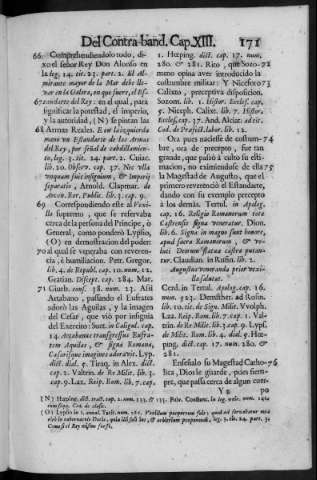 Del Contra-band. Cap. XIII. 171
66 Comprehendiólo todo, di-
xo el señor Rey Don Alonso en
la leg. 24. tit. 23. part. 2. El Al-
mirante mayor de la Mar debe lle-
var en la Galera, en que fuere, el Es-
67 tandarte del Rey: en el qual, para
significar la potestad, el imperio,
y la autoridad, (N) se pintan las
68 Armas Reales. E en la izquierda
mano un Estandarte de las Armas
del Rey, por señal de cabdillamien-
to, leg. 3. tit. 24. part. 2. Cuiac.
lib. 20. Observ. cap. 37. Nec ulla
unquam fuisse insignium, & Imperij
separatio, Arnold. Clapmar. de
Arcan. Rer. Public. lib. 3. cap. 9.
69 Correspondiendo este al Vexi-
llo supremo, que se reservaba
cerca de la persona del Principe, ò
General, como ponderò Lypsio,
(O) en demostracion del poder:
70 al qual se vaperaba con reveren-
cia, è humiliacion. Petr. Gregor.
lib. 4. de Republ. cap. 10. num. 12.
Gratian. Discept. cap. 284. Mar.
71 Giurb. conf. 38. num. 23. Assi
Artabano, passando el Eufrates
adorò las Aguilas, y la imagen
del Cesar, que viò por insignia
del Exercito: Suet. in Caligul. cap.
14. Artabanus transgressus Eufra-
tem Aquilas, & signa Romana,
Cæsarisque imagines adoravit. Lyp.
dict. dial. 5. Tiraq. in Alex. dict.
cap. 2. Valtrin. de Re Milit. lib. 3.
cap. 9. Laz. Reip. Rom. lib. 7. cap.
1. Hœping. dict. cap. 17. num.
280. & 281. Rito, que Sozo- 72
meno opina aver introducido la
costumbre militar: Y Niceforo 73
Calixto, preceptiva disposicion.
Sozom. lib. 1. Histor. Eccles. cap.
5. Niceph. Calixt. lib. 7. Histor.
Eccles. cap. 37. And. Alciat. ad tit.
Cod. de Præfict. labor. lib. 12.
Ora pues naciesse de costum- 74
bre, ora de precepto, fue tan
grande, que passò à culto su esti-
macion, no eximiendose de ella 75
la Magestad de Augusto, que el
primero reverenciò el Estandarte,
dando con su exemplo precepto
à los demàs. Tertul. in Apolog.
cap. 16. Religio Romanorum tota
Castrensis signa veneratur. Dion.
lib. 6. Signa in magno sunt honore,
apud sacra Romanorum, & velu-
ti Deorum statuæ castra putan-
tur. Claudian. in Rufin. lib. 2.
Augustus veneranda prior vexil-
la salutat.
Cerd. in Tertul. Apolog. cap. 16.
num. 523. Demsther. ad Rosin.
lib. 10. tit. de Sign. Milit. Vvolph.
Laz. Reip. Rom. lib. 7. cap. 1. Val-
trin. de Re Milit. lib. 3. cap. 9. Lyps.
de Milit. Rom. lib. 4. dial. 5. Hœ-
ping. dict. cap. 17. num. 280. &
281.
Enseñalo su Magestad Catho- 76
lica, Dios le guarde, pues siem-
pre, que passa cerca de algun cuer-
Y 2 po